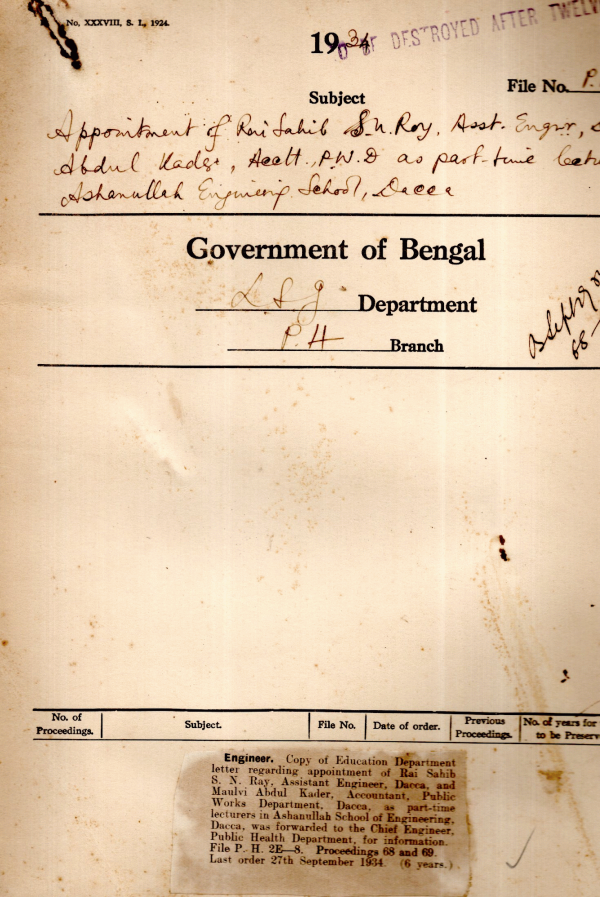 No. XXXVIII, S. I., 1924.
D OF DESTROYED AFTER TWELV
1934
File No. P.
Subject
Appointment of Rai Sahib S.N. Roy, Asst. Engnr,
Abdul Kader, Acctt. P.W.D as part-time lectu
Ashanullah Engineering School, Dacca
Government of Bengal
L. S. G. Department
P. H Branch
B Sept
68 -
No. of Proceedings. Subject. File No. Date of order. Previous Proceedings. No. of years for to be Preserv
Engineer. Copy of Education Department
letter regarding appointment of Rai Sahib
S. N. Ray, Assistant Engineer, Dacca, and
Maulvi Abdul Kader, Accountant, Public
Works Department, Dacca, as part-time
lecturers in Ashanullah School of Engineering,
Dacca, was forwarded to the Chief Engineer,
Public Health Department, for information.
File P. H. 2E—8. Proceedings 68 and 69.
Last order 27th September 1934. (6 years.)